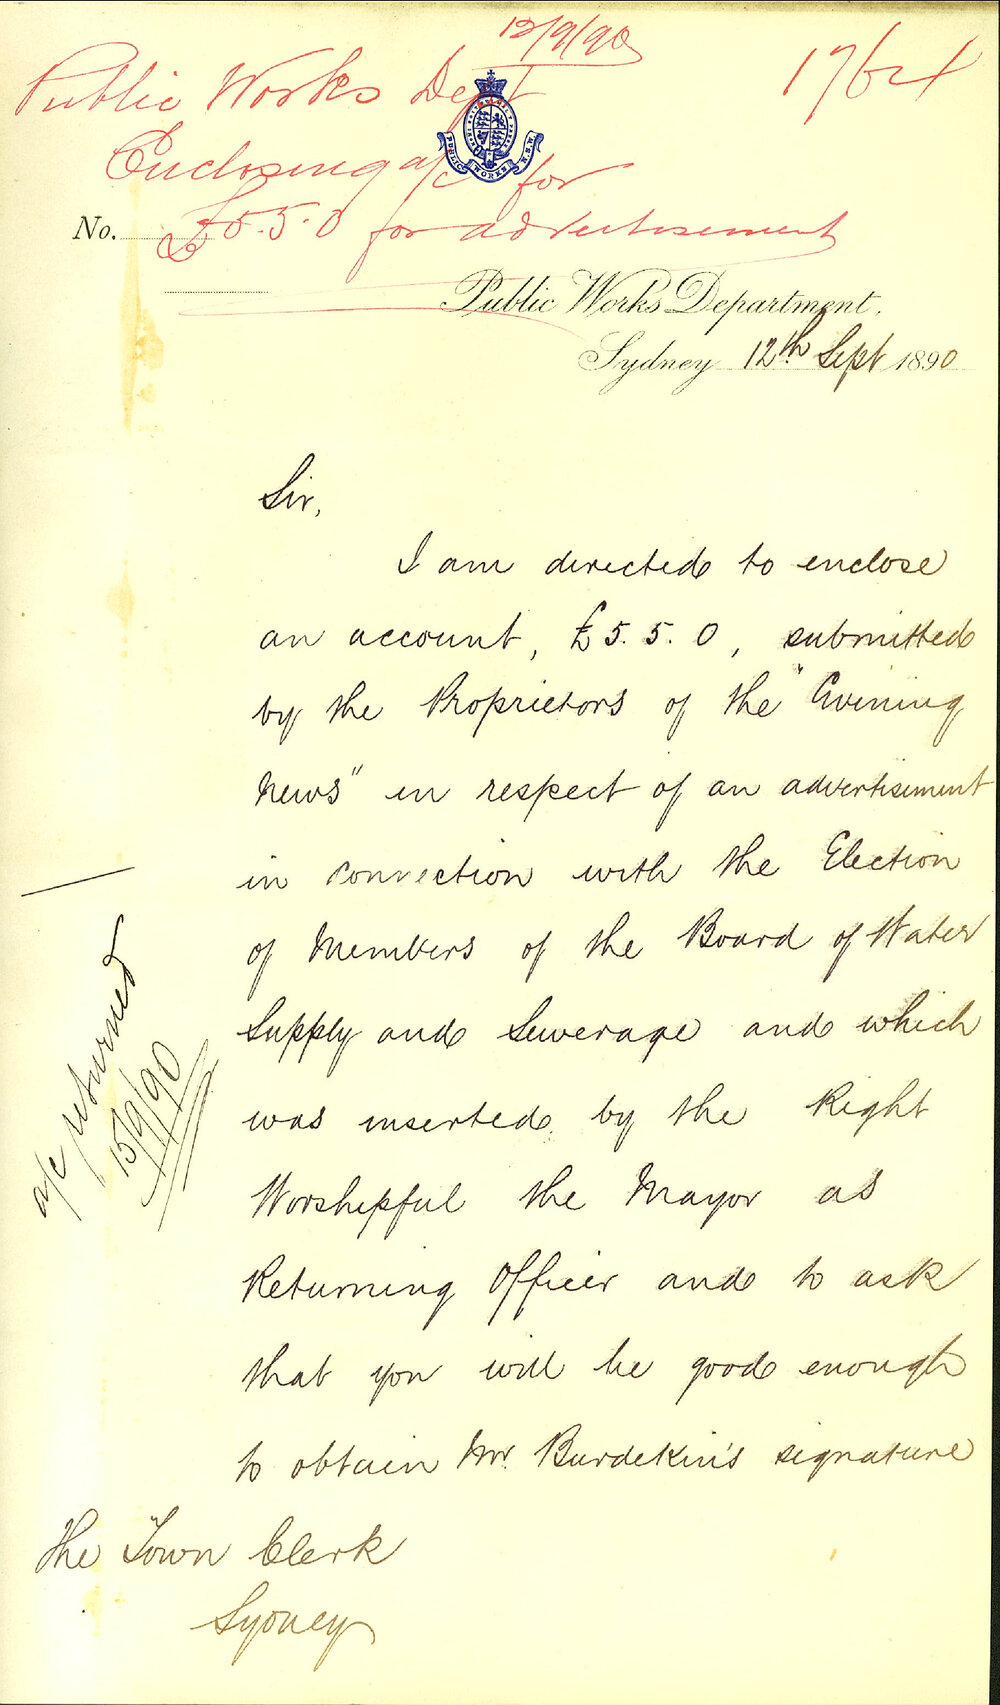 12/9/90
Public Works Dept
Enclosing a/c for
£5.5.0 for advertisement
PUBLIC WORKS N.S.W.
No.
Public Works Department,
Sydney 12th Sept 1890
Sir,
I am directed to enclose
an account, £5.5.0, submitted
by the Proprietors of the "Evening
News" in respect of an advertisement
in connection with the Election
of Members of the Board of Water
Supply and Sewerage and which
was inserted by the Right
Worshipful the Mayor as
Returning Officer and to ask
that you will be good enough
to obtain Mr. Burdekin's signature
a/c returned
15/9/90
The Town Clerk
Sydney